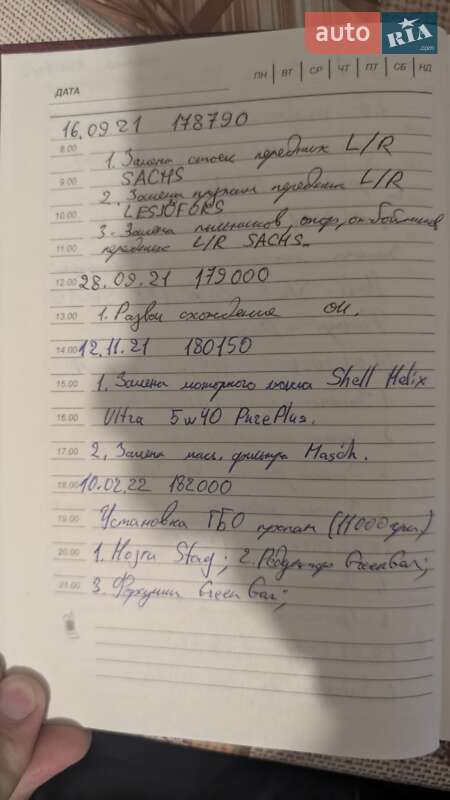 auto RIA .com
ДАТА
ПН ВТ СР ЧТ ПТ СБ НД
16.09.21 178790
8.00
1. Замена стоек передних L/R
9.00 SACHS
2. Замена пружин передних L/R
10.00 LESJÖFORS
3. Замена пыльников, опор, отбойников
11.00 передних L/R SACHS.
12.00 28.09.21 179000
13.00 1. Развал схождение ОК.
14.00 12.11.21 180150
15.00 1. Замена моторного масла Shell Helix
16.00 Ultra 5w40 PurePlus.
17.00 2. Замена масл. фильтра Masch.
18.00 10.02.22 182000
19.00 Установка ГБО пропан (11000грн)
20.00 1. Мозги Stag; 2. Редуктор GreenGas;
21.00 3. Форсунки Green Gas;